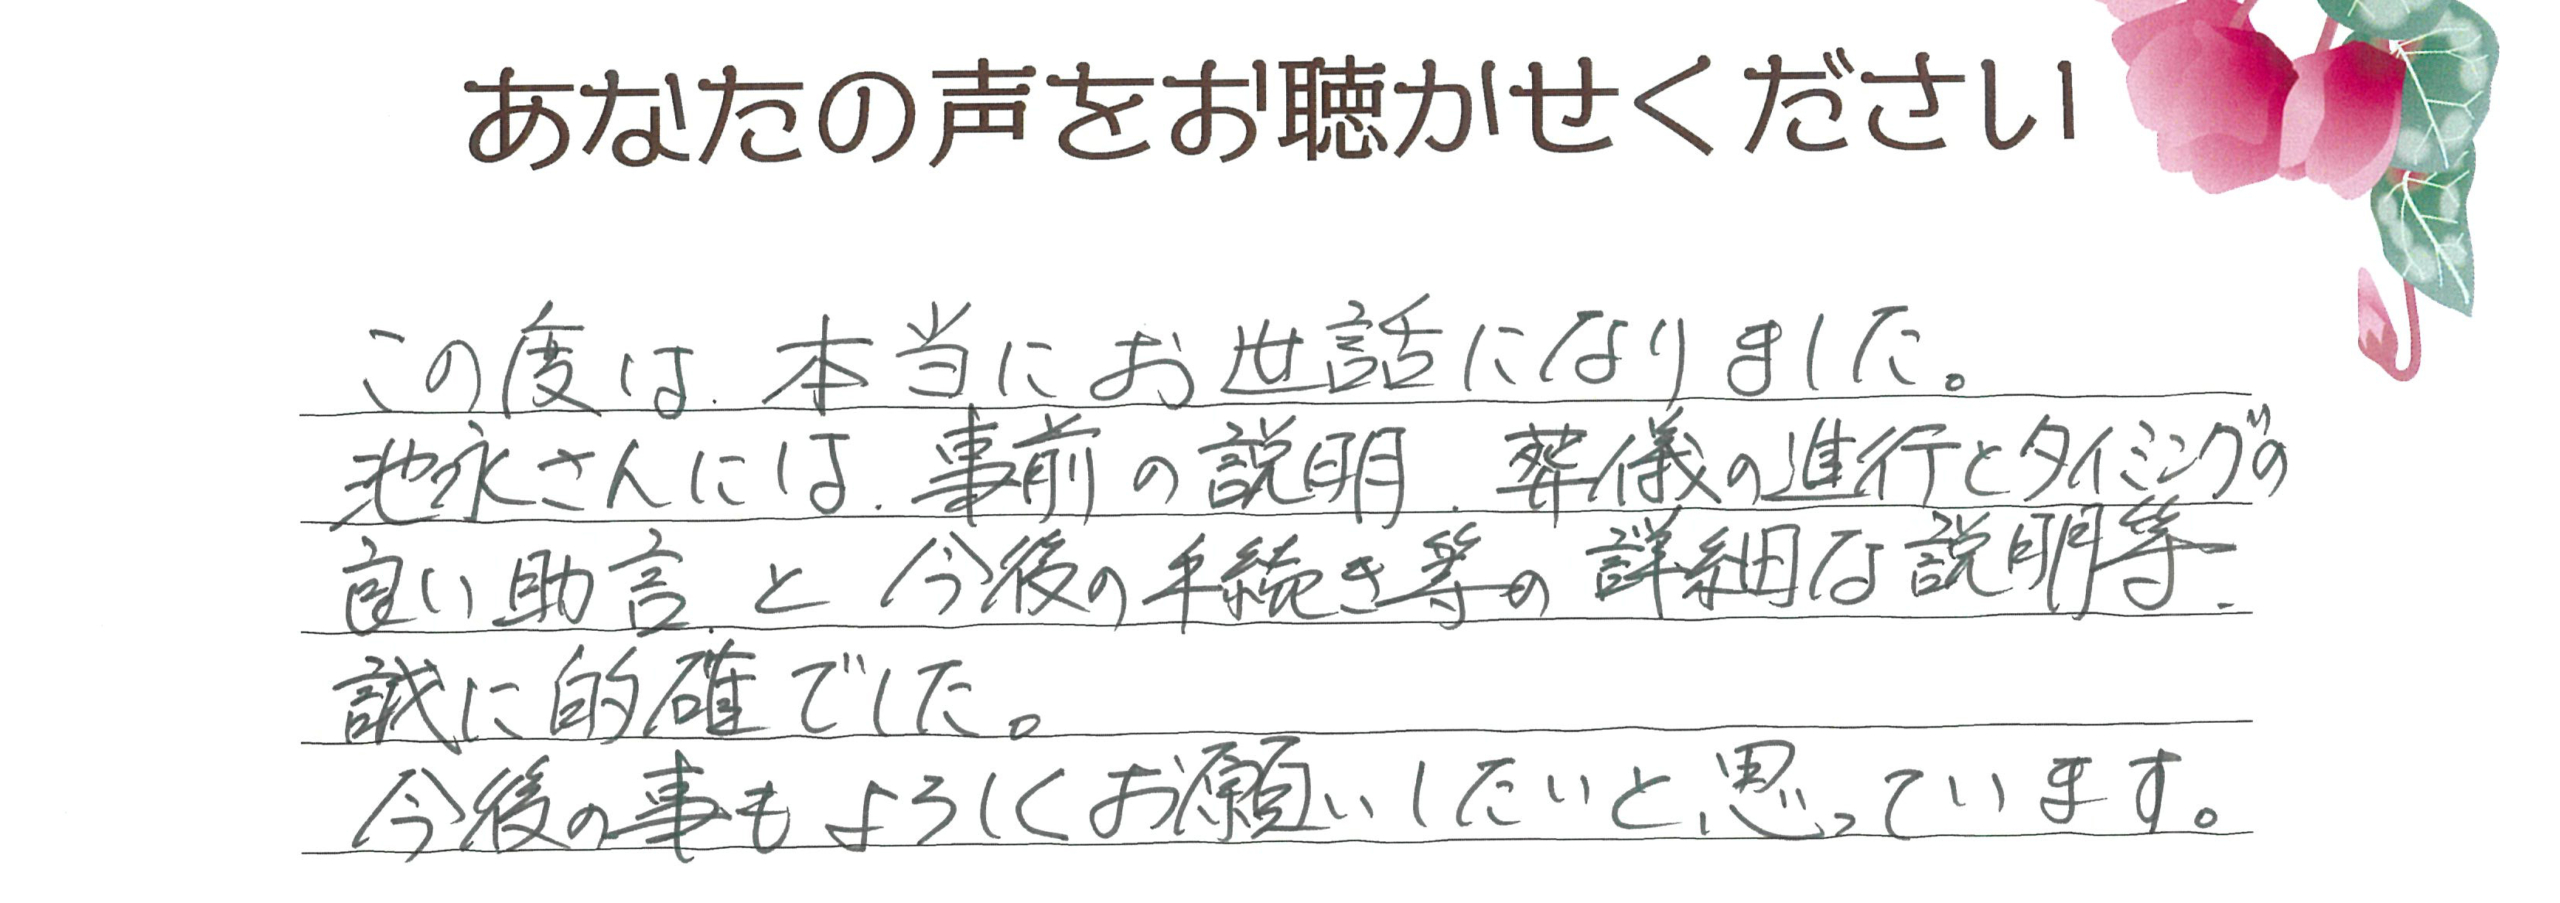 あなたの声をお聴かせください
この度は、本当にお世話になりました。
池永さんには、事前の説明、葬儀の進行とタイミングの
良い助言、と今後の手続き等の詳細な説明等、
誠に的確でした。
今後の事もよろしくお願いしたいと思っています。